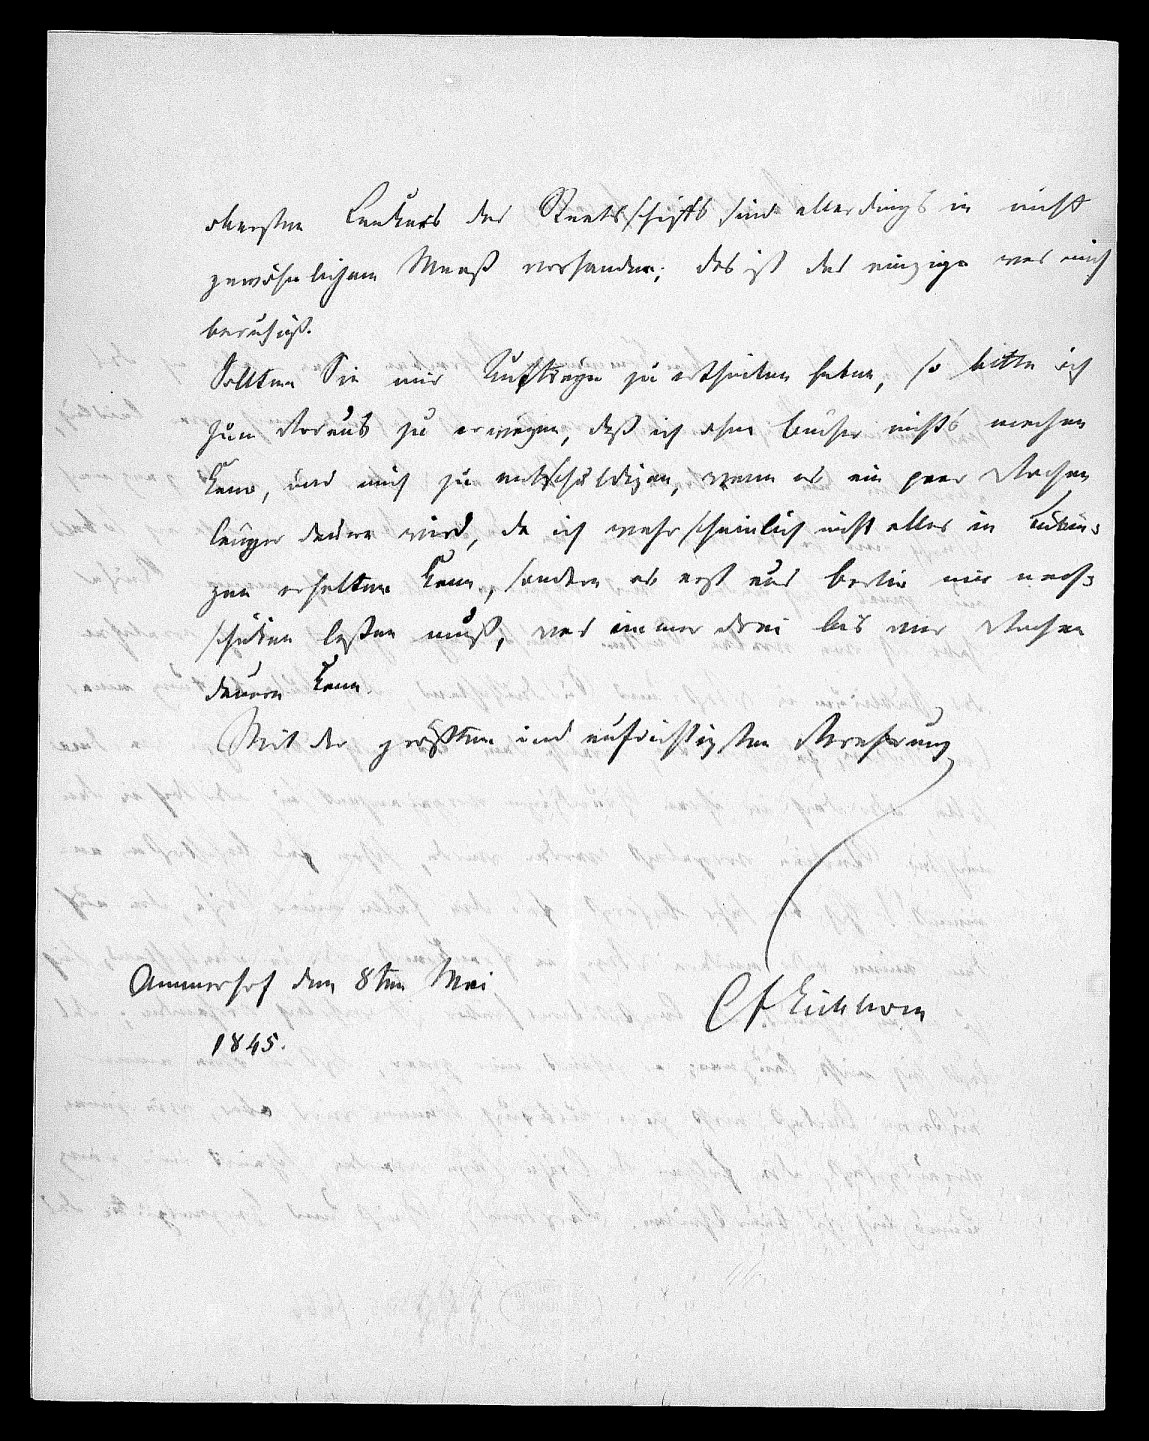 obersten Lenkers des Staatsschiffs sind allerdings in nicht
gewöhnlichem Maaß vorhanden; das ist das einzige was mich
beruhigt.
Sollten Sie mir Aufträge zu ertheilen haben, so bitte ich
zum Voraus zu erwägen, daß ich ohne bücher nichts machen
kann, und mich zu entschuldigen, wenn es ein paar Wochen
länger dauern wird, da ich wahrscheinlich nicht alles in Tübin-
gen erhalten kann, sondern es erst aus berlin mir nach-
schicken laßen muß, was immer drei bis vier Wochen
dauern kann.
Mit der größten und aufrichtigsten Verehrung
Ammerhof den 8ten Mai
1845.
CF Eichhorn